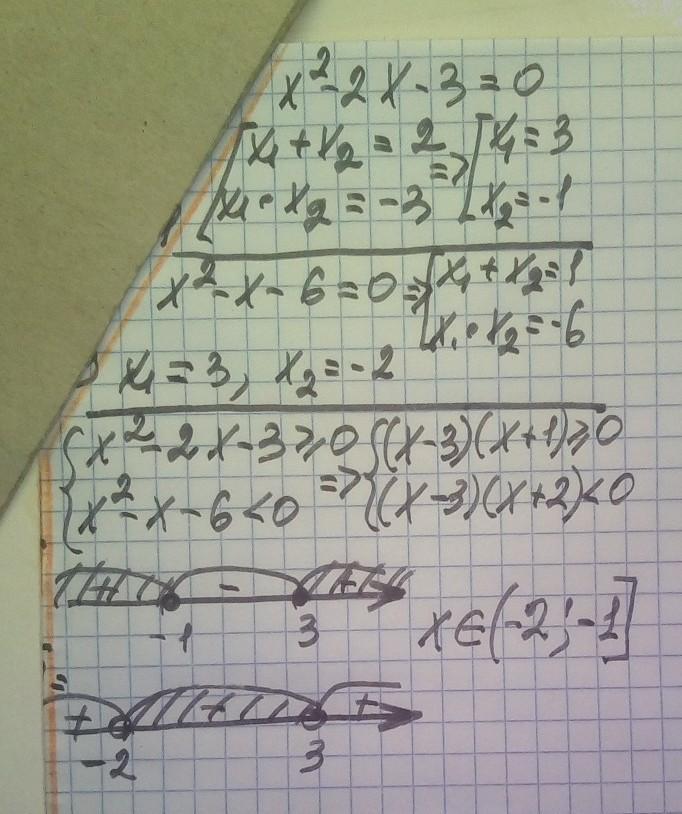 x²-2x-3=0
[x₁+x₂=2 => [x₁=3
[x₁·x₂=-3 [x₂=-1
x²-x-6=0 => [x₁+x₂=1
[x₁·x₂=-6
x₁=3, x₂=-2
{x²-2x-3≥0 => {(x-3)(x+1)≥0
{x²-x-6<0 {(x-3)(x+2)<0
+ - +
-1 3
x∈(-2;-1]
+ - +
-2 3